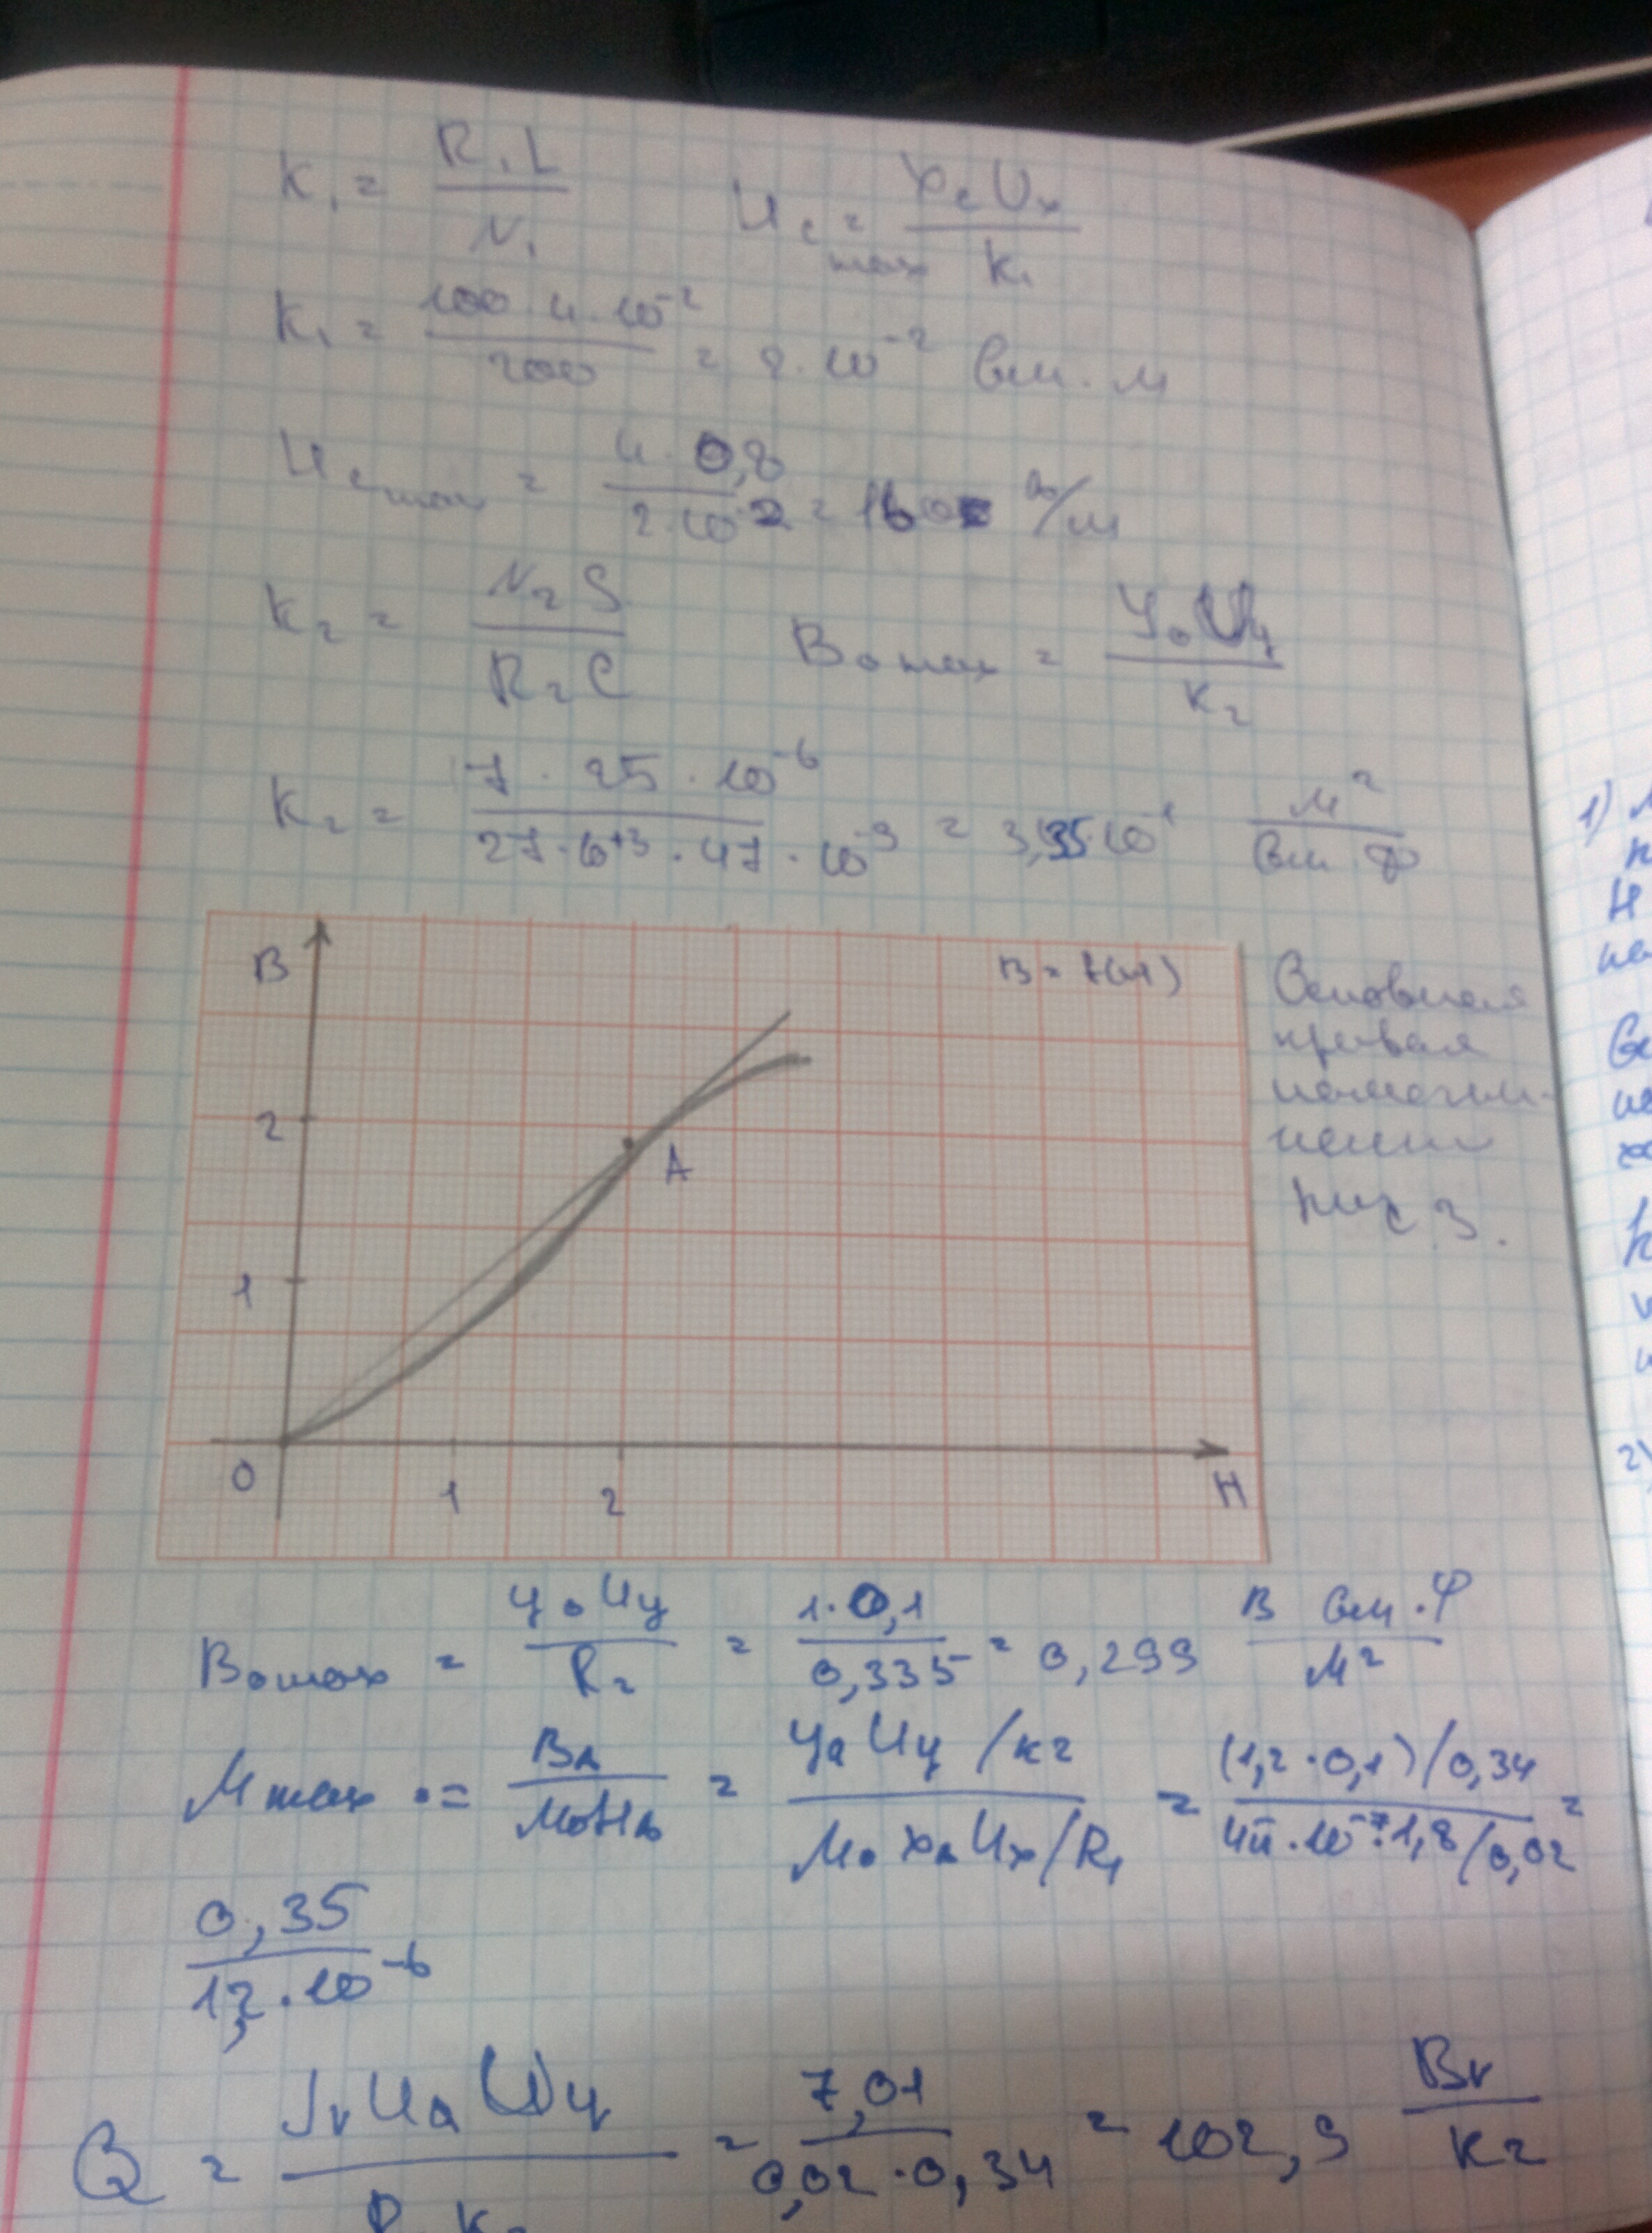 K₁ = R₁L / N₁    H c max = x c Uₓ / K₁
K₁ = 100 · 4 · 10⁻² / 200 = 2 · 10⁻² Ом · м
H c max = 4 · 0,8 / 2 · 10⁻² = 160 А/м
K₂ = N₂ S / R₂ C    B₀ max = y₀ U y / K₂
K₂ = 7 · 25 · 10⁻⁶ / 27 · 10⁺³ · 47 · 10⁻⁹ = 3,35 · 10⁻¹ м² / Ом · Ф
B
B = f(H)
2
A
1
0
1
2
H
Основная
кривая
намагни-
чения
рис 3.
B₀ max = y₀ U y / R₂ = 1 · 0,1 / 0,335 = 0,299 В Ом · Ф / м²
M max = B A / M₀ H A = y A U y / K₂ / M₀ x A U x / R₁ = (1,2 · 0,1) / 0,34 / 4π · 10⁻⁷ · 1,8 / 0,02 =
0,35 / 12 · 10⁻⁶
= 7,01 / 0,02 · 0,34 = 102,9
1)
2)